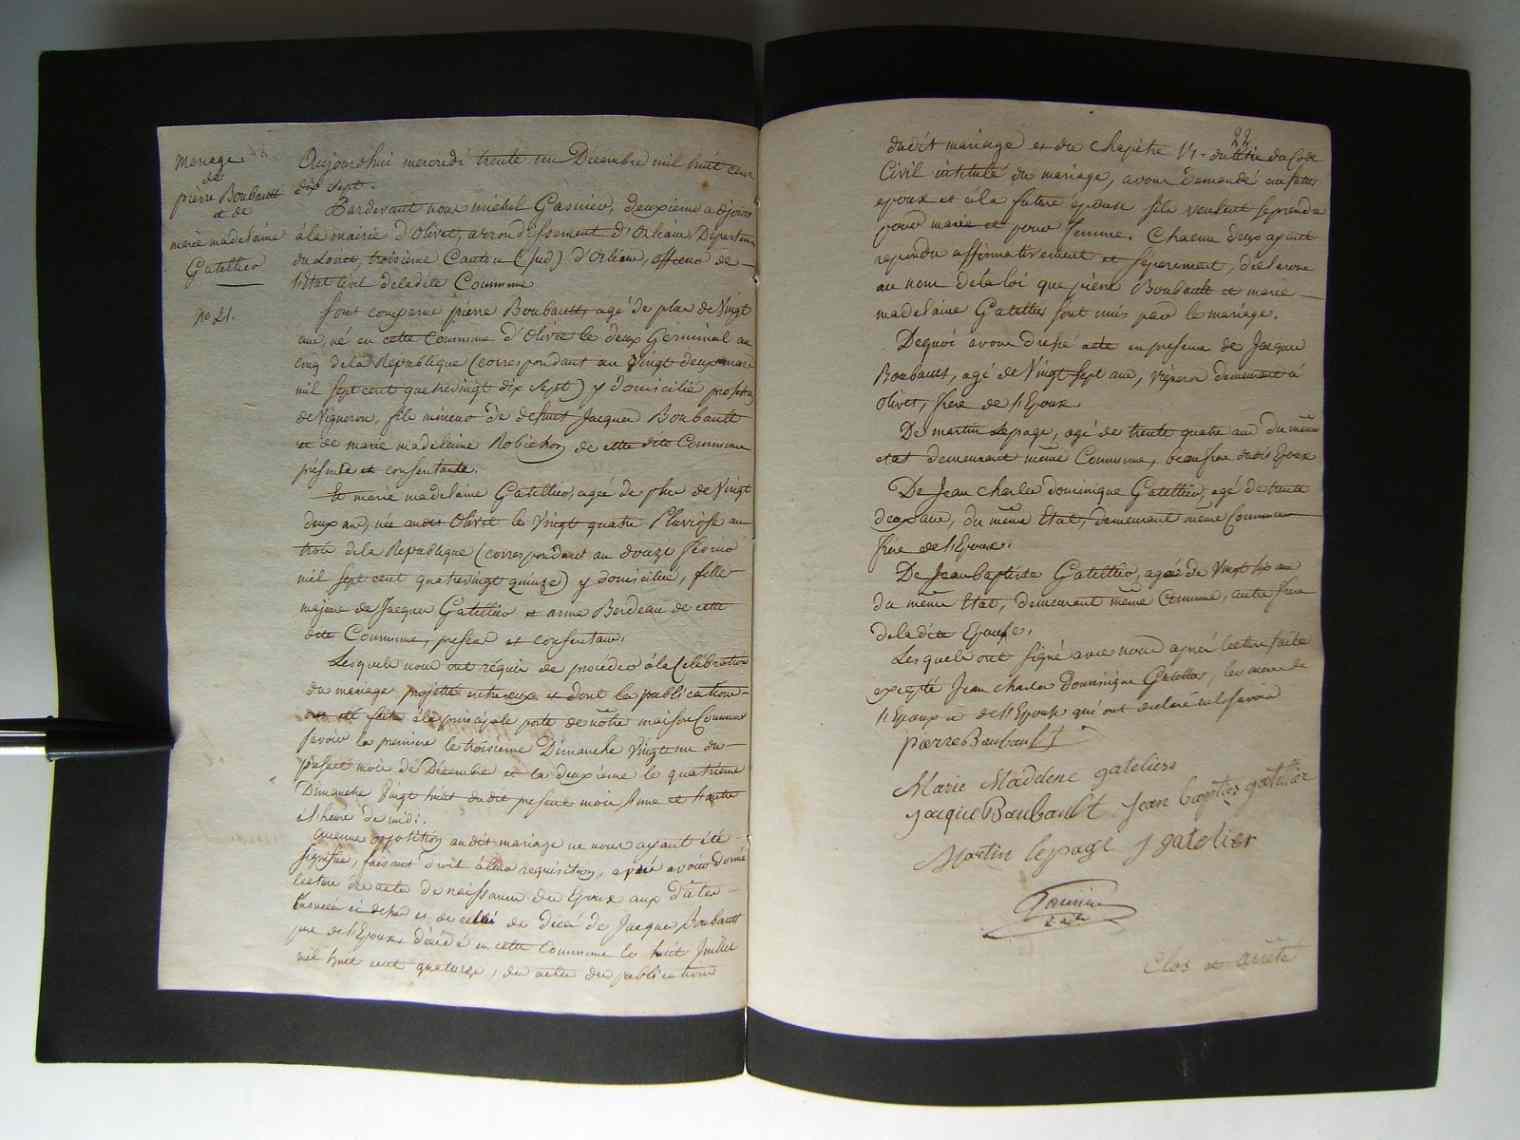 Mariage
de
pierre Boubault
et de
marie madelaine
Gatellier
no 21.
Aujourdhui mercredi trente un Decembre mil huit cent
dix sept.
Pardevant nous michel Gasnier, deuxieme adjoint
à la mairie d'Olivet, arrondissement d'Orléans, Département
du Loiret, troisieme Canton (sud) d'Orléans, officier de
l'Etat Civil de ladite Commune
sont comparus pierre Boubault, agé de plus de Vingt
ans, né en cette Commune d'Olivet le deux Germinal an
cinq de la Republique (correspondant au Vingt deux mars
mil sept cent quatrevingt dix sept) y domicilié profession
de Vigneron, fils mineur de defunt Jacques Boubault
et de marie madelaine Robichon de cette dite Commune
présente et consentante.
Et marie madelaine Gatellier, agée de plus de Vingt
deux ans, née audit Olivet le Vingt quatre Pluviose an
trois de la Republique (correspondant au douze fevrier
mil sept cent quatrevingt quinze) y domiciliée, fille
majeure de Jacques Gatellier et anne Bordeau de cette
dite Commune, presens et consentans.
Lesquels nous ont requis de proceder à la Célébration
du mariage projetté entre eux et dont les publications
ont été faites à la principale porte de nôtre maison Commune
savoir la premiere le troisieme Dimanche Vingt un du
present mois de Décembre et la deuxieme le quatrieme
Dimanche Vingt huit dudit present mois l'une et l'autre
à l'heure de midi.
Aucune opposition audit mariage ne nous ayant été
signifiée, faisant droit à leur requisition, après avoir donné
lecture des actes de naissance des Epoux aux dates
énoncées ci dessus et de celui de décès de Jacques Boubault
pere de l'Epoux décédé en cette Commune le huit Juillet
mil huit cent quatorze, des actes des publications
22
dudit mariage et du Chapitre VI du titre du Code
Civil intitulé du mariage, avons demandé au futur
epoux et à la future épouse s'ils veulent se prendre
pour mari et pour femme. Chacun d'eux ayant
repondu affirmativement et séparément, déclarons
au nom de la loi que pierre Boubault et marie
madelaine Gatellier sont unis par le mariage.
Dequoi avons dressé acte en presence de Jacques
Boubault, agé de Vingt sept ans, vigneron demeurant à
Olivet, frere de l'Epoux
De martin Lepage, agé de trente quatre ans du même
état demeurant même Commune, beaufrere dudit Epoux
De Jean charles dominique Gatellier, agé de trente
deux ans, du même Etat, demeurant même Commune
frere de l'Epouse.
De Jean baptiste Gatellier, agé de Vingt six ans
du même Etat, demeurant même Commune, autre frere
de ladite Epouse.
Lesquels ont signé avec nous après lecture faite
excepté Jean charles Dominique Gatellier, les meres de
l'Epoux et de l'Epouse qui ont declaré ne le savoir
pierre Baubault
Marie Madelene gateliers
jacque Baubault Jean baptiste gatellier
Martin lepage J gatelier
Gasnier
Clos et arrêté